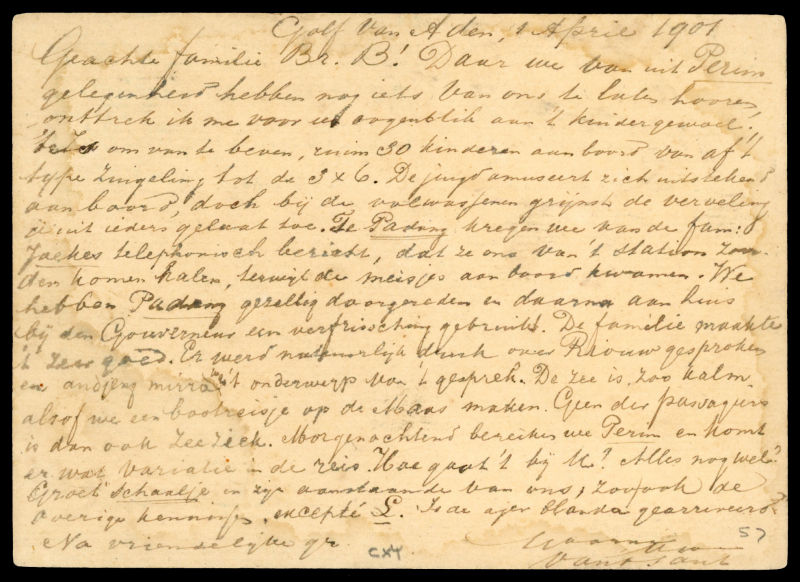 Golf van Aden, 1 April 1901
Geachte familie Br. B! Daar we van uit Perim
gelegenheid hebben nog iets van ons te laten hooren,
onttrek ik me voor een oogenblik aan 't kindergewoel.
't Is om van te beven, ruim 30 kinderen aan boord van af 't
type zuigeling tot de 3x6. De jeugd amuseert zich uitstekend
aan boord, doch bij de volwassenen grijnst de verveling
uit ieders gelaat toe. Te Padang kregen we van de fam:
Jaekes telephonisch bericht, dat ze ons van 't station zou-
den komen halen, terwijl de meisjes aan boord kwamen. We
hebben Padang gezellig doorgereden en daarna aan huis
bij den Gouverneur een verfrissching gebruikt. De familie maakte
't zeer goed. Er werd natuurlijk druk over Riouw gesproken
en andjeng mirra was 't onderwerp van 't gesprek. De zee is zoo kalm
alsof we een bootreisje op de Maas maken. Geen der passagiers
is dan ook zeeziek. Morgenochtend bereiken we Perim en komt
er wat variatie in de reis. Hoe gaat 't bij U? Alles nog wel?
Groet Schaatje en zijn aanstaande van ons, zoo ook de
overige kennisjes, excepté L. Is de ager Blanda gearriveerd?
Na vriendelijke gr.
57
CXY